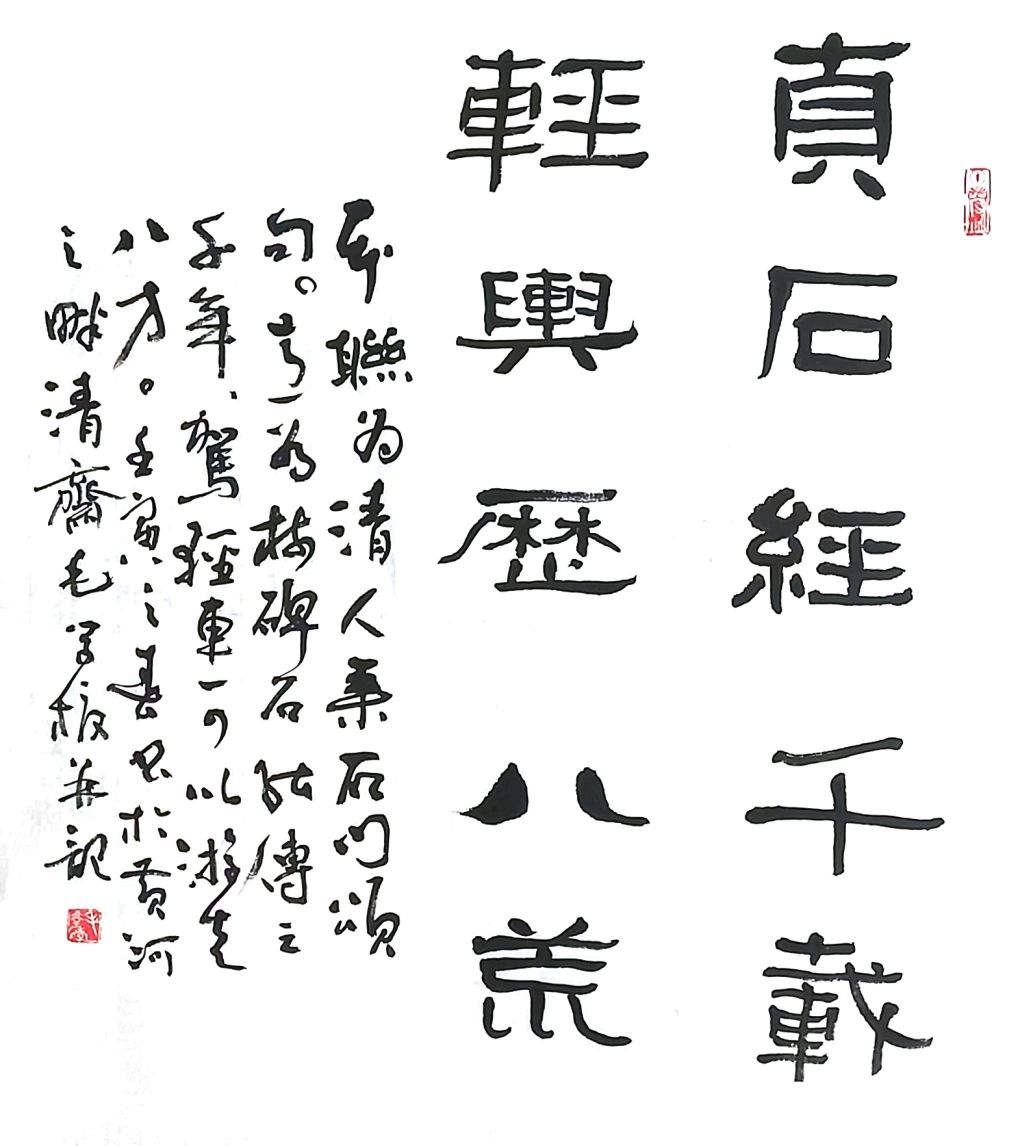 貞石經千載
輕輿歷八荒
本聯為清人集石門頌
句。言為樹碑石能傳之
千年、駕輕車可以游走
八方。壬寅之春書於黄河
之畔清齋毛并記